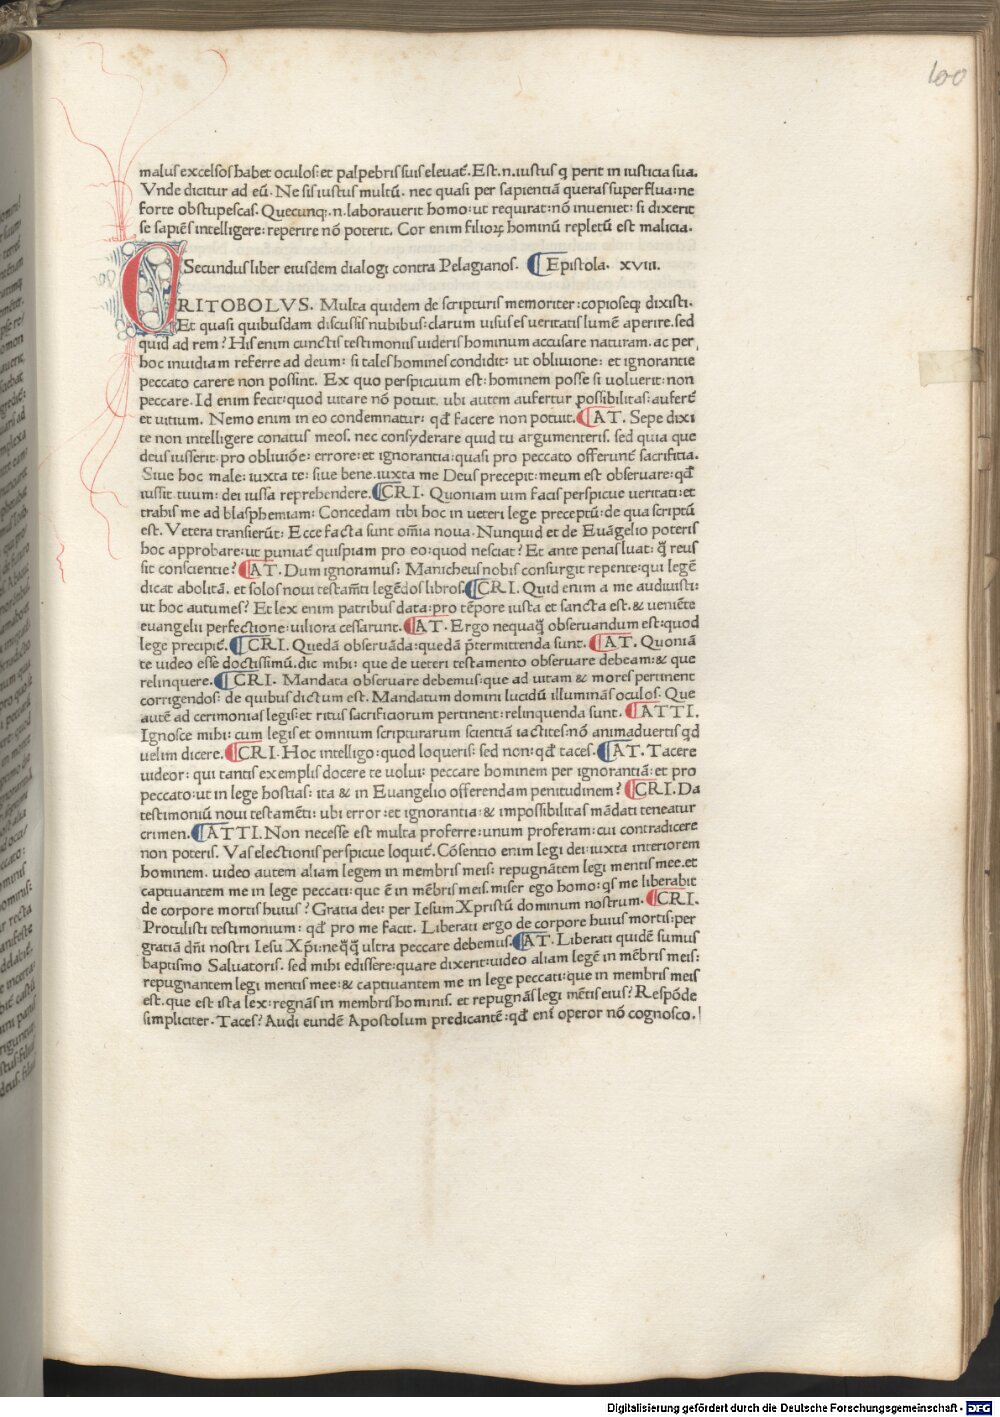 100
malus excelsos habet oculos: et palpebris suis eleuat̃. Est .n. iustus q̨ perit in iusticia sua.
Vnde dicitur ad eũ. Ne sis iustus multũ. nec quasi per sapientiã queras superflua: ne
forte obstupescas. Quecunq; .n. laborauerit homo: ut requirat: nõ inueniet: si dixerit
se sapiẽs intelligere: reperire nõ poterit. Cor enim filioꝝ hominũ repletũ est malicia.
Secundus liber eiusdem dialogi contra Pelagianos. ¶ Epistola. XVIII.
CRITOBOLVS. Multa quidem de scripturis memoriter: copioseq; dixisti.
Et quasi quibusdam discussis nubibus: clarum uisus es ueritatis lumẽ aperire. sed
quid ad rem? His enim cunctis testimoniis uideris hominum accusare naturam. ac per
hoc inuidiam referre ad deum: si tales homines condidit: ut obliuione: et ignorantie
peccato carere non possint. Ex quo perspicuum est: hominem posse si uoluerit: non
peccare. Id enim fecit: quod uitare nõ potuit. ubi autem aufertur possibilitas: aufert̃
et uitium. Nemo enim in eo condemnatur: qđ facere non potuit. ¶ AT. Sepe dixi
te non intelligere conatus meos. nec consyderare quid tu argumenteris. sed quia que
deus iusserit: pro obliuiõe: errore: et ignorantia: quasi pro peccato offerunt̃ sacrificia.
Siue hoc male: iuxta te: siue bene. iuxta me Deus precepit: meum est obseruare: qđ
iussit. tuum: dei iussa reprehendere. ¶ CRI. Quoniam uim facis perspicue ueritati: et
trahis me ad blasphemiam: Concedam tibi hoc in ueteri lege preceptũ: de qua scriptũ
est. Vetera transierũt: Ecce facta sunt om̃ia noua. Nunquid et de Euãgelio poteris
hoc approbare: ut puniat̃ quispiam pro eo: quod nesciat? Et ante penas luat: q̃ reus
sit conscientie? ¶ AT. Dum ignoramus: Manicheus nobis consurgit repente: qui legẽ
dicat abolitã. et solos noui testam̃ti legẽdos libros. ¶ CRI. Quid enim a me audiuisti:
ut hoc autumes? Et lex enim patribus data: pro tẽpore iusta et sancta est. & ueniẽte
euangelii perfectione: uiliora cessarunt. ¶ AT. Ergo nequaq̃ obseruandum est: quod
lege precipit̃. ¶ CRI. Quedã obseruãda: quedã p̃termittenda sunt. ¶ AT. Quoniã
te uideo esse doctissimũ. dic mihi: que de ueteri testamento obseruare debeam: & que
relinquere. ¶ CRI. Mandata obseruare debemus: que ad uitam & mores pertinent
corrigendos: de quibus dictum est. Mandatum domini lucidũ illuminãs oculos. Que
autẽ ad cerimonias legis: et ritus sacrificiorum pertinent: relinquenda sunt. ¶ ATTI.
Ignosce mihi: cum legis et omnium scripturarum scientiã iactites: nõ animaduertis qđ
uelim dicere. ¶ CRI. Hoc intelligo: quod loqueris: sed non: qđ taces. ¶ AT. Tacere
uideor: qui tantis exemplis docere te uolui: peccare hominem per ignorantiã: et pro
peccato: ut in lege hostias: ita & in Euangelio offerendam penitudinem? ¶ CRI. Da
testimoniũ noui testamẽti: ubi error: et ignorantia: & impossibilitas mãdati teneatur
crimen. ¶ ATTI. Non necesse est multa proferre: unum proferam: cui contradicere
non poteris. Vas electionis perspicue loquit̃. Cõsentio enim legi dei: iuxta interiorem
hominem. uideo autem aliam legem in membris meis: repugnãtem legi mentis mee. et
captiuantem me in lege peccati: que ẽ in mẽbris meis. miser ego homo: q̃s me liberabit
de corpore mortis huius? Gratia dei: per Iesum Xpristũ dominum nostrum. ¶ CRI.
Protulisti testimonium: qđ pro me facit. Liberati ergo de corpore huius mortis: per
gratiã dñi nostri Iesu Xp̃i: neq̃q̃ ultra peccare debemus. ¶ AT. Liberati quidẽ sumus
baptismo Saluatoris. sed mihi edissere: quare dixerit: uideo aliam legẽ in mẽbris meis:
repugnantem legi mentis mee: & captiuantem me in lege peccati: que in membris meis
est. que est ista lex: regnãs in membris hominis. et repugnãs legi mẽtis eius? Respõde
simpliciter. Taces? Audi eundẽ Apostolum predicantẽ: qđ eni᷈ operor nõ cognosco.
Digitalisierung gefördert durch die Deutsche Forschungsgemeinschaft - DFG